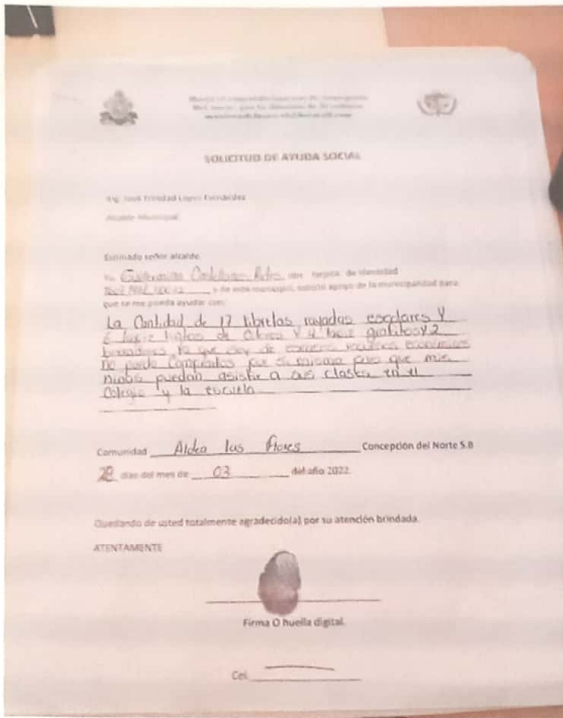 SOLICITUD DE AYUDA SOCIAL
Ing. José Trinidad
Alcalde Municipal
Estimado señor alcalde
Yo con tarjeta de identidad
de este municipio, solicito apoyo de la municipalidad para
que se me pueda ayudar con:
La Cantidad de 17 libretas rayadas escolares y
6 lapiz tintas de y 4 lapiz grafitos y 2
borradores ya que soy de escasos recursos económicos
no puedo comprarlos por mi misma para que mis
niños puedan asistir a sus clases en el
Colegio y la escuela
Comunidad Aldea las flores Concepción del Norte S.B
28 días del mes de 03 del año 2022.
Quedando de usted totalmente agradecido(a) por su atención brindada.
ATENTAMENTE
Firma O huella digital.
Cel.